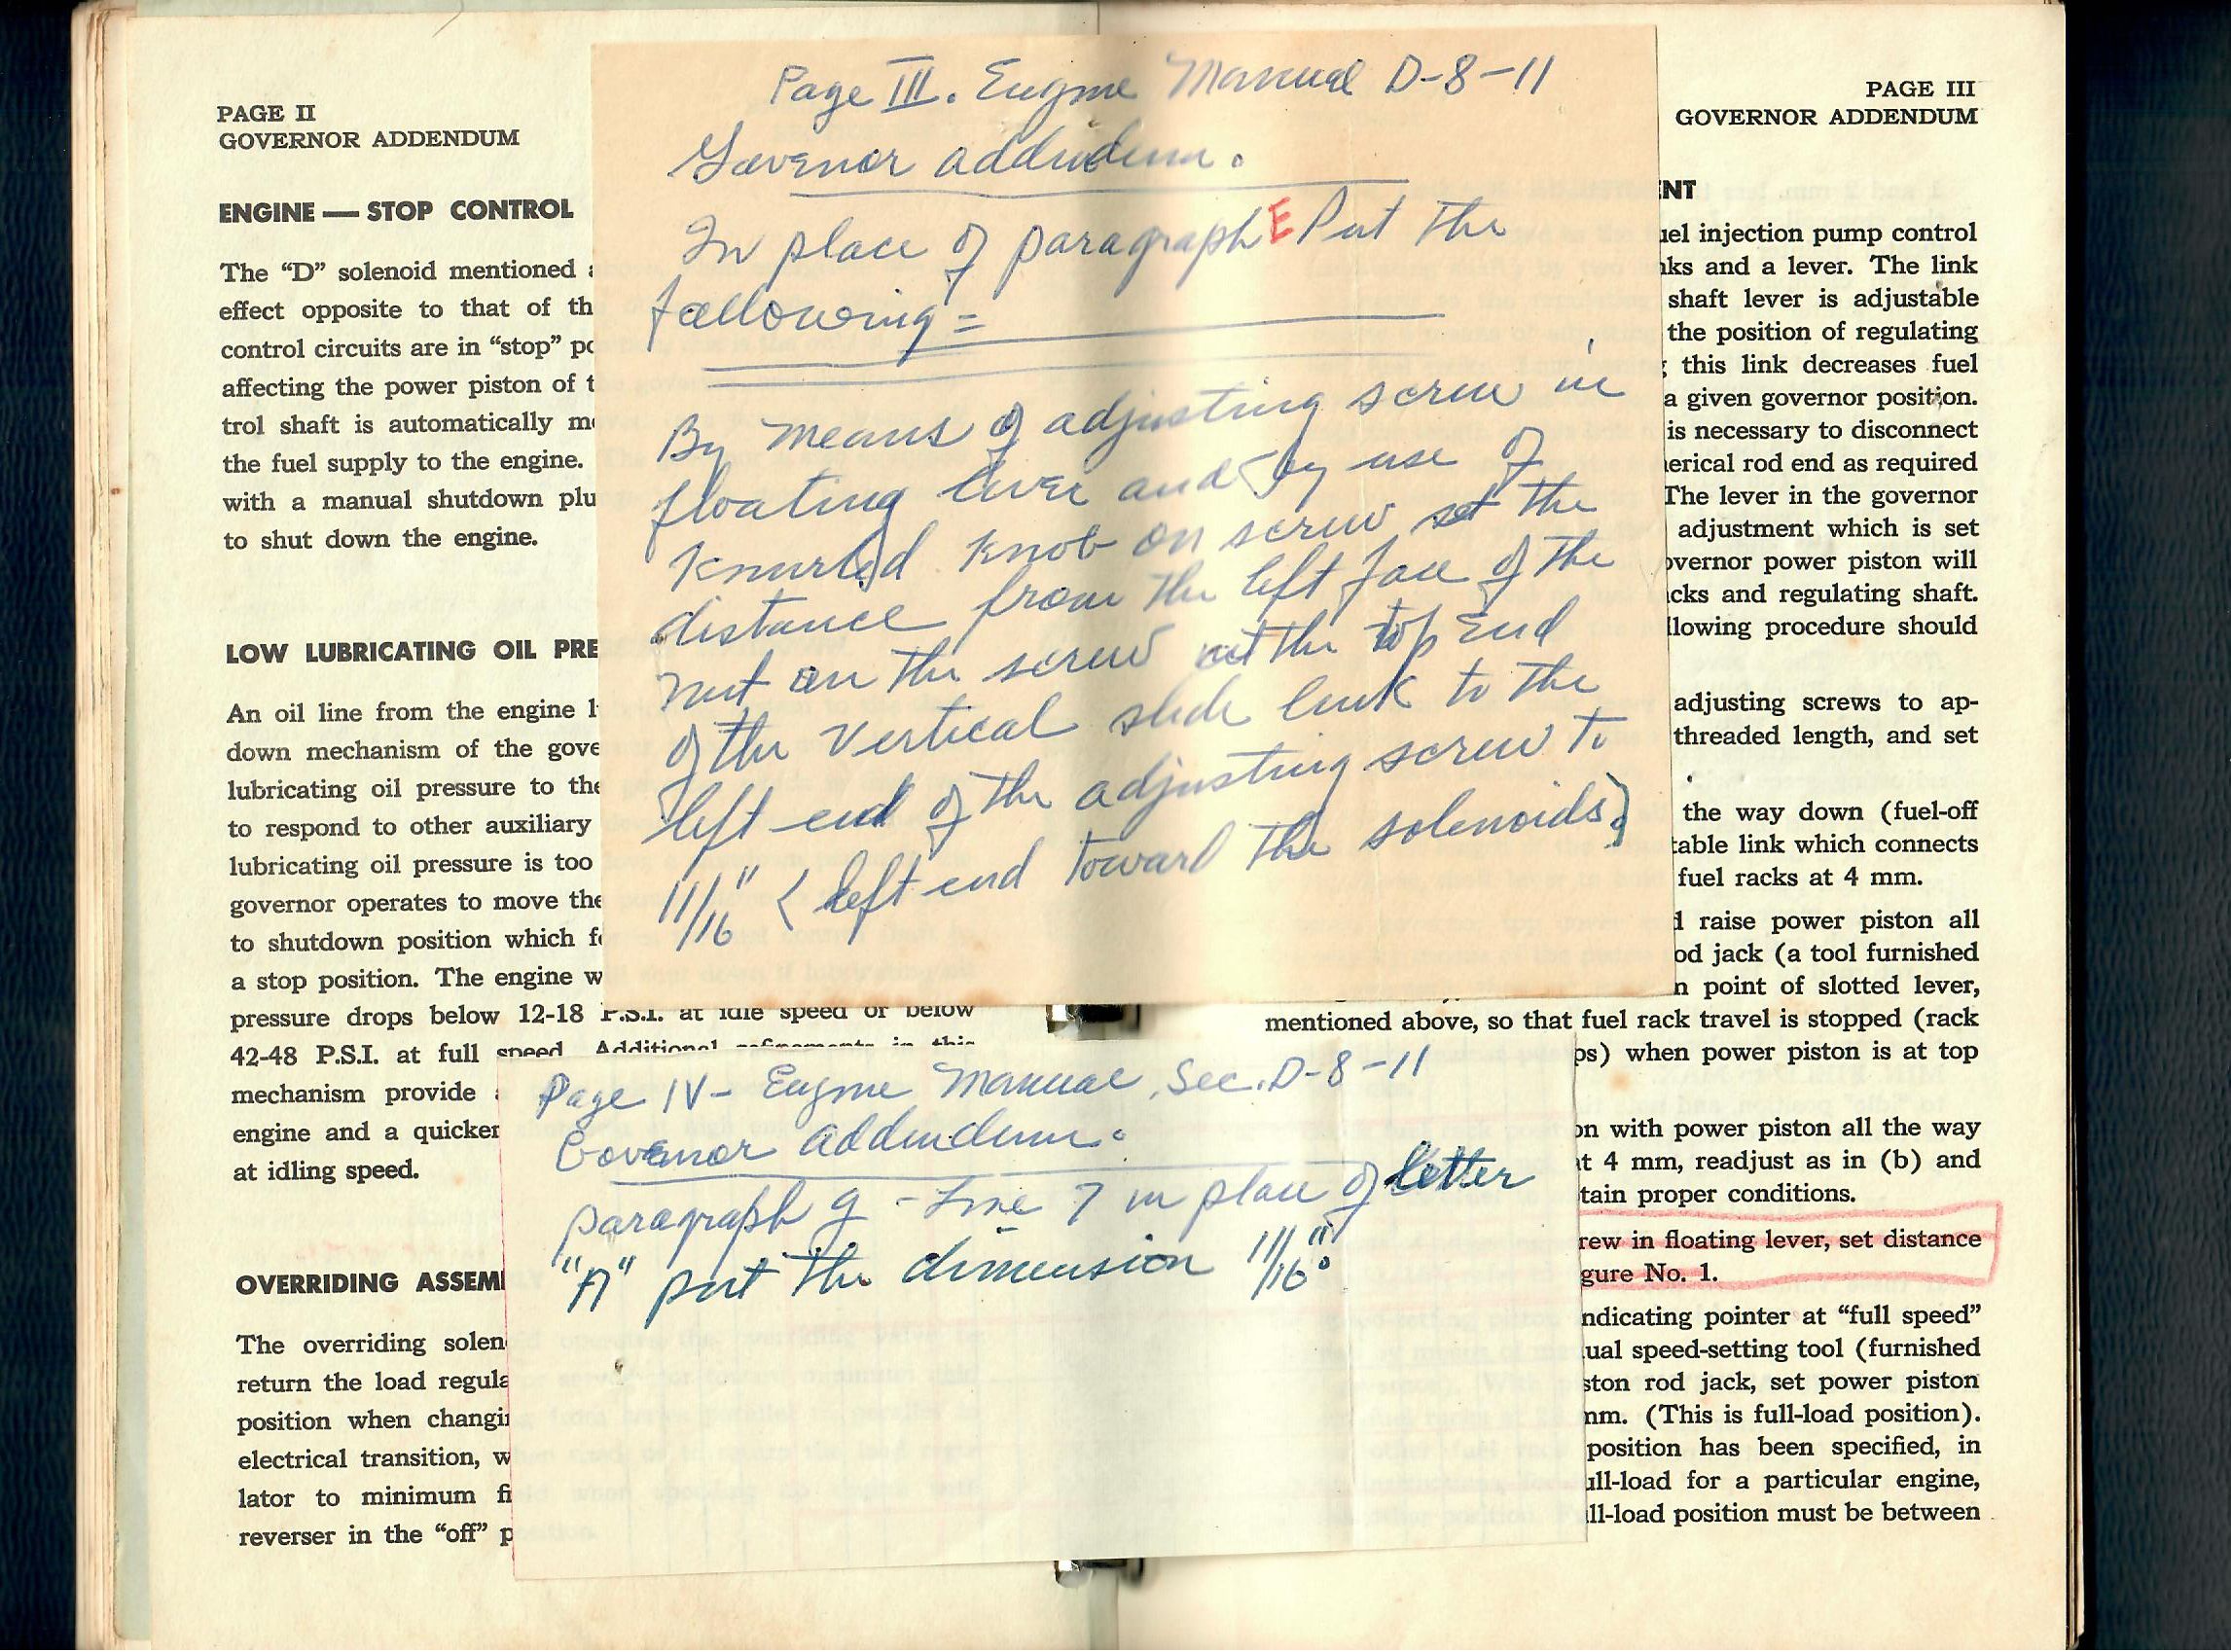 PAGE II
GOVERNOR ADDENDUM
ENGINE — STOP CONTROL
The “D” solenoid mentioned
effect opposite to that of th
control circuits are in “stop” po
affecting the power piston of t
trol shaft is automatically m
the fuel supply to the engine.
with a manual shutdown plu
to shut down the engine.
LOW LUBRICATING OIL PRE
An oil line from the engine l
down mechanism of the gove
lubricating oil pressure to the
to respond to other auxiliary
lubricating oil pressure is too
governor operates to move the
to shutdown position which f
a stop position. The engine w
pressure drops below 12-18 P.S.I. at idle speed or below
42-48 P.S.I. at full speed. Additional refinements in this
mechanism provide
engine and a quicker
at idling speed.
OVERRIDING ASSEM
The overriding solen
return the load regula
position when changi
electrical transition, w
lator to minimum fi
reverser in the “off” p
Page III. Engine Manual D-8-11
Govenor addendum.
In place of paragraph E Put the
following =
By means of adjusting screw in
floating lever and by use of
Knurled knob on screw set the
distance from the left face of the
nut on the screw at the top end
of the vertical slide link to the
left end of the adjusting screw to
11/16" (left end toward the solenoids)
Page IV - Engine Manual, Sec. D-8-11
Govenor addendum.
paragraph g - Line 7 in place of letter
"A" put the dimension 11/16".
PAGE III
GOVERNOR ADDENDUM
ENT
uel injection pump control
nks and a lever. The link
shaft lever is adjustable
the position of regulating
this link decreases fuel
a given governor position.
is necessary to disconnect
erical rod end as required
The lever in the governor
adjustment which is set
overnor power piston will
cks and regulating shaft.
llowing procedure should
adjusting screws to ap-
threaded length, and set
the way down (fuel-off
table link which connects
fuel racks at 4 mm.
d raise power piston all
od jack (a tool furnished
n point of slotted lever,
mentioned above, so that fuel rack travel is stopped (rack
ps) when power piston is at top
on with power piston all the way
at 4 mm, readjust as in (b) and
tain proper conditions.
rew in floating lever, set distance
gure No. 1.
ndicating pointer at “full speed”
ual speed-setting tool (furnished
ston rod jack, set power piston
mm. (This is full-load position).
position has been specified, in
ull-load for a particular engine,
ll-load position must be between